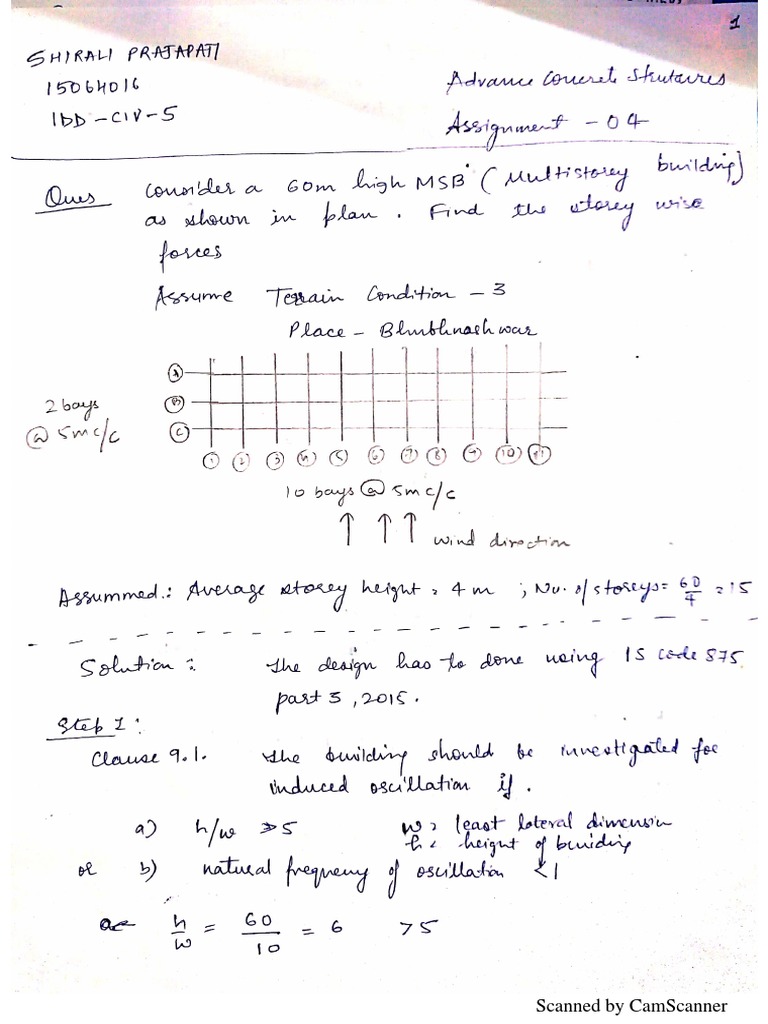 1
SHIRALI PRAJAPATI
15064016
IDD-CIV-5
Advance Concrete Strutures
Assignment - 04
Ques Consider a 60m high MSB (Multistorey building)
as shown in plan. Find the storey wise
forces
Assume Terrain Condition - 3
Place - Bhubhneshwar
A
B
C
2 bays
@ 5m c/c
1 2 3 4 5 6 7 8 9 10 11
10 bays @ 5m c/c
wind direction
Assummed: Average storey height = 4 m ; No. of storeys = 60/4 = 15
Solution: The design has to done using IS code 875
part 3, 2015.
Step 1:
Clause 9.1. The building should be investigated for
induced oscillation if.
a) h/w > 5 w = least lateral dimension
h = height of building
or b) natural freqreny of oscillation < 1
h/w = 60/10 = 6 > 5
Scanned by CamScanner